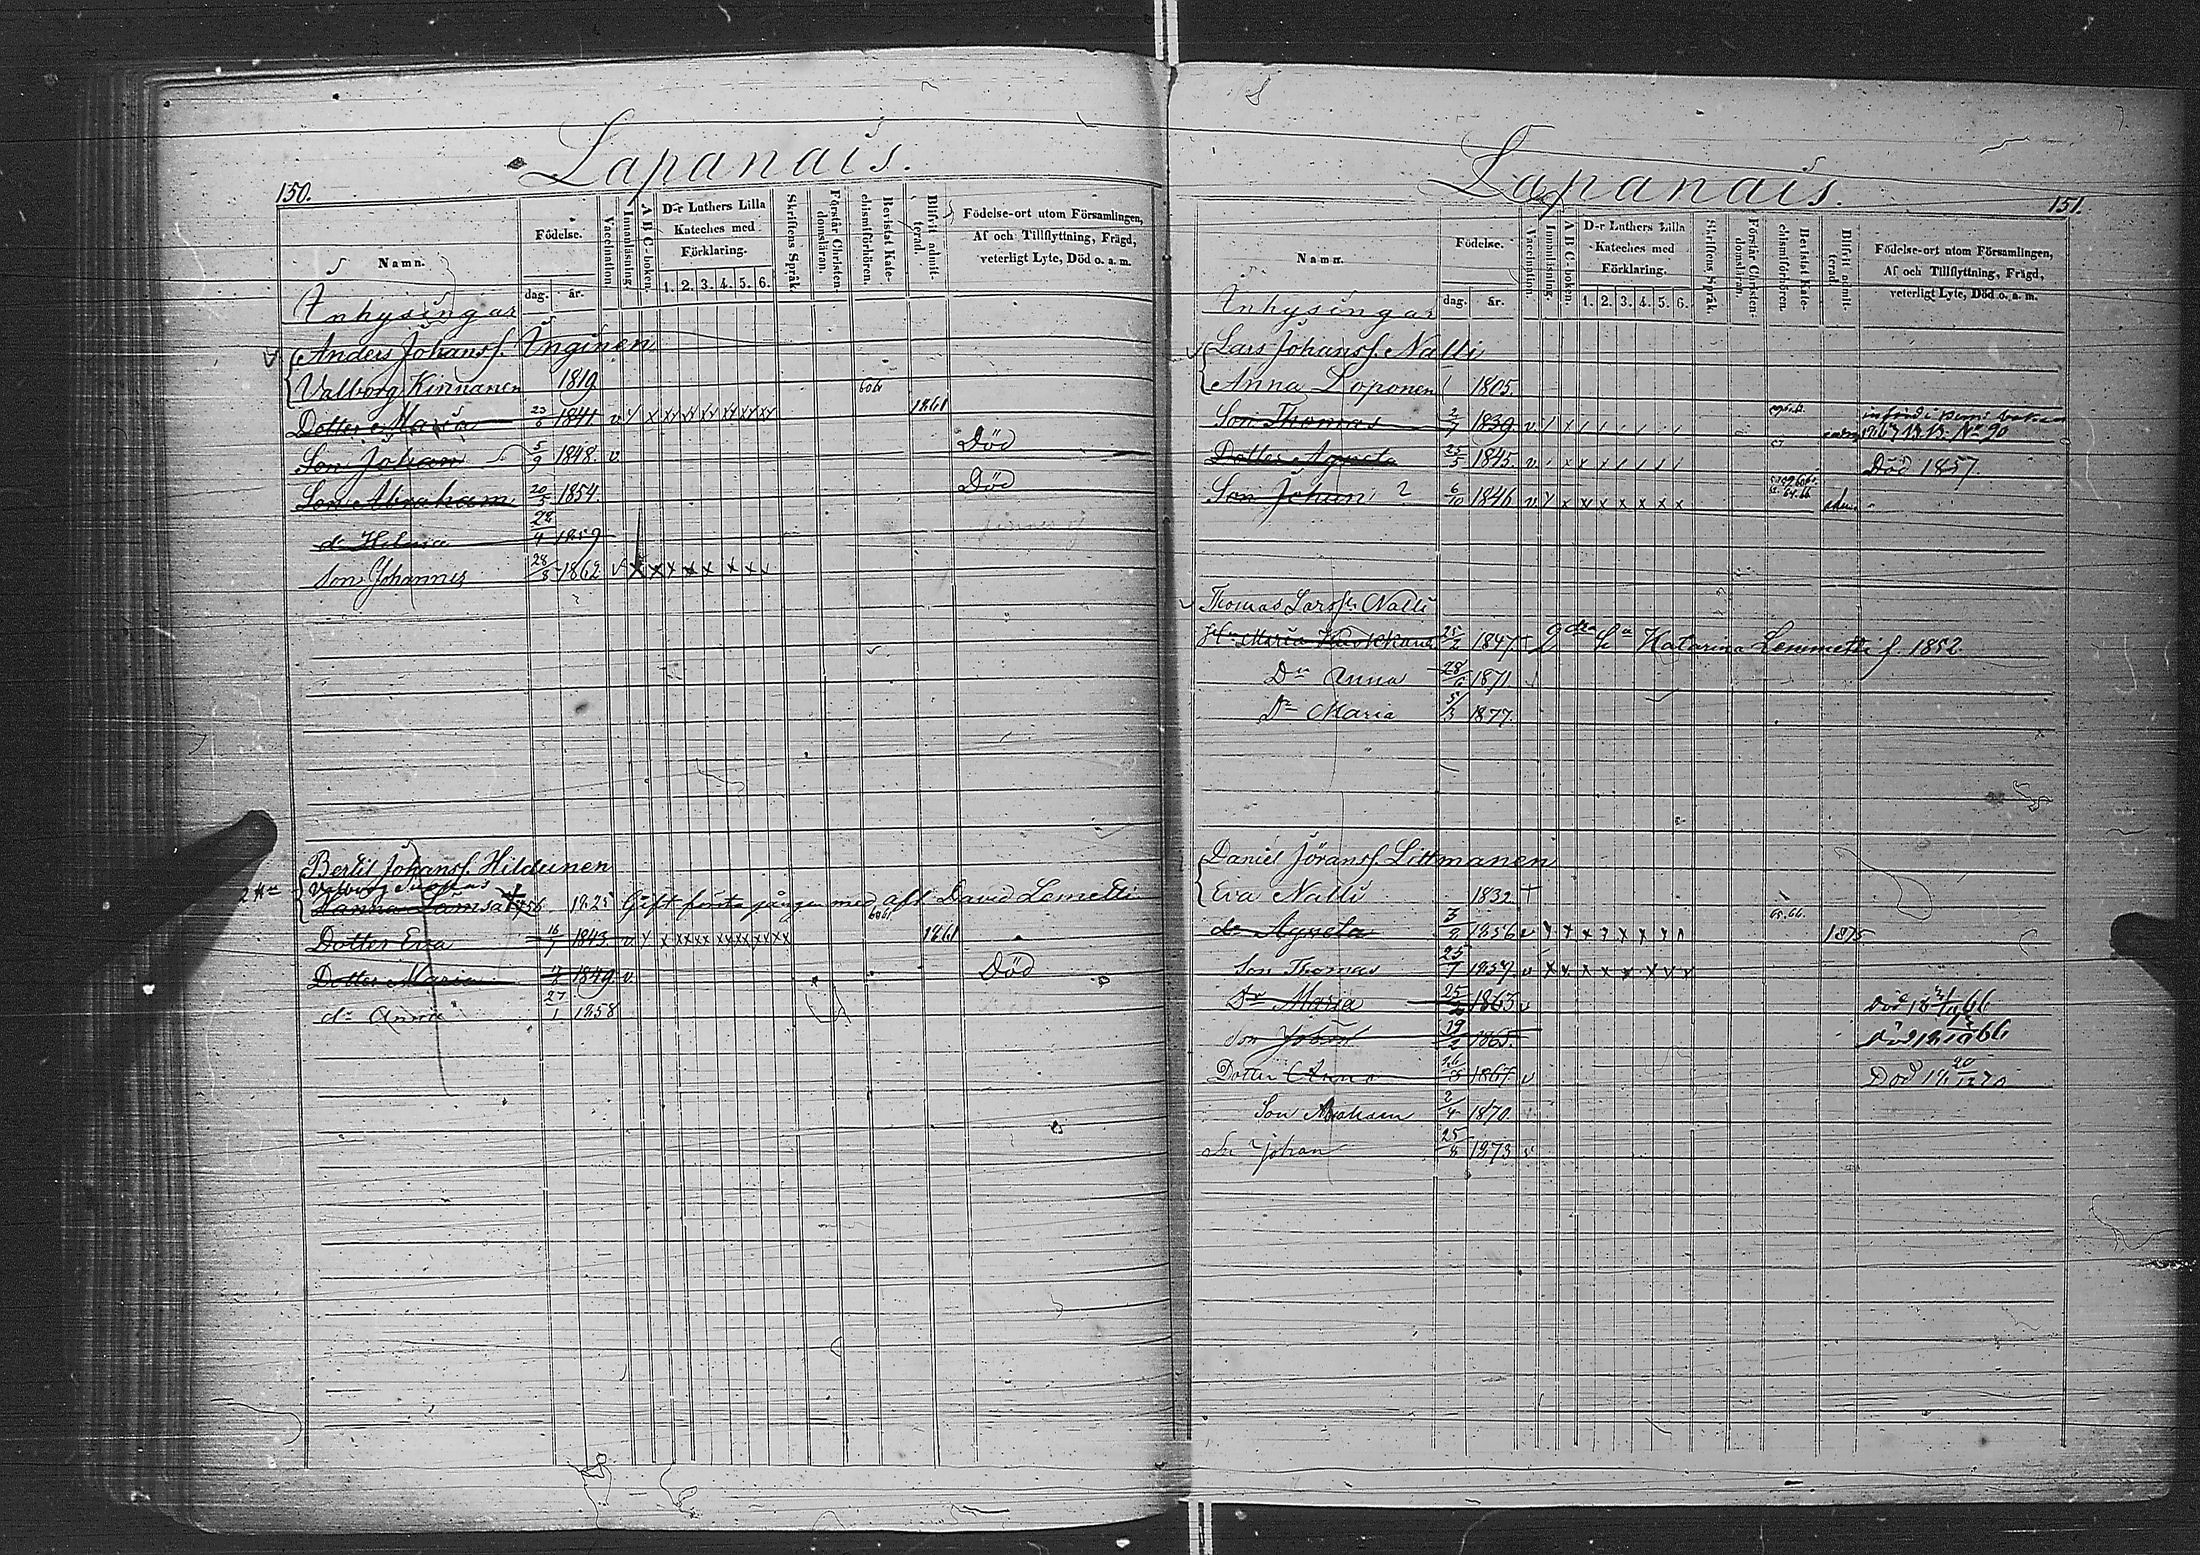 150.
Lapanais.
Namn.
Födelse.
dag. år.
Vaccination.
Innanläsning.
A B C-boken.
D-r Luthers Lilla
Kateches med
Förklaring.
1. 2. 3. 4. 5. 6.
Skriftens Språk.
Förstår Christen-
domsläran.
Bevistat Kate-
chismiförhören.
Blifvit admit-
terad.
Födelse-ort utom Församlingen,
Af och Tillflyttning, Frägd,
veterligt Lyte, Död o. a. m.
Inhysingar
Anders Johanss. Inginen
Valborg Kinnanen 1819
Dotter Maria 23/6 1841. v x xx xx xx xx xx xx 1861
Son Johan 5/9 1848. v. Död
Son Abraham 20/3 1854 Död
d:r Helena 22/4 1859
Son Johannes 28/8 1862 v x x x x x x x
Bertil Johanss. Hildunen
2 H:u Valborg
Hanna 1825 Gift första gången med afl. David Lemetti
Dotter Eva 16/7 1843. v 1861
Dotter Maria 1849. v. Död
d:r Anna 27/1 1858
151.
Lapanais.
Namn.
Födelse.
dag. år.
Vaccination.
Innanläsning.
A B C-boken.
D-r Luthers Lilla
Kateches med
Förklaring.
1. 2. 3. 4. 5. 6.
Skriftens Språk.
Förstår Christen-
domsläran.
Bevistat Kate-
chismiförhören.
Blifvit admit-
terad.
Födelse-ort utom Församlingen,
Af och Tillflyttning, Frägd,
veterligt Lyte, Död o. a. m.
Inhysingar
Lars Johanss. Nalli
Anna Loponen 1805.
Son Thomas 2/7 1839 v No 90
Dotter Agneta 25/5 1845. v Död 1857.
Son Johan 6/10 1846 v x x x x x x x
Thomas Larss. Nalli
H:u Maria 25/2 1847 † 2dra h:u Katarina Lemmetti f. 1852.
D:r Anna 28/6 1871
D:r Maria 5/3 1877.
Daniel Jöranss. Littmanen
Eva Nalli 1832 †
d:r Agneta 3/2 1856 v 65.66. 1875
Son Thomas 25/7 1857 v x x x x x x x x
D:r Maria 25 1863 v Död 66
Son Johan 19/2 1865. Död 66
Dotter Anna 26 1867 v Död 20/12 70
Son Abraham 2/4 1870
Sn Johan 25/8 1873 v